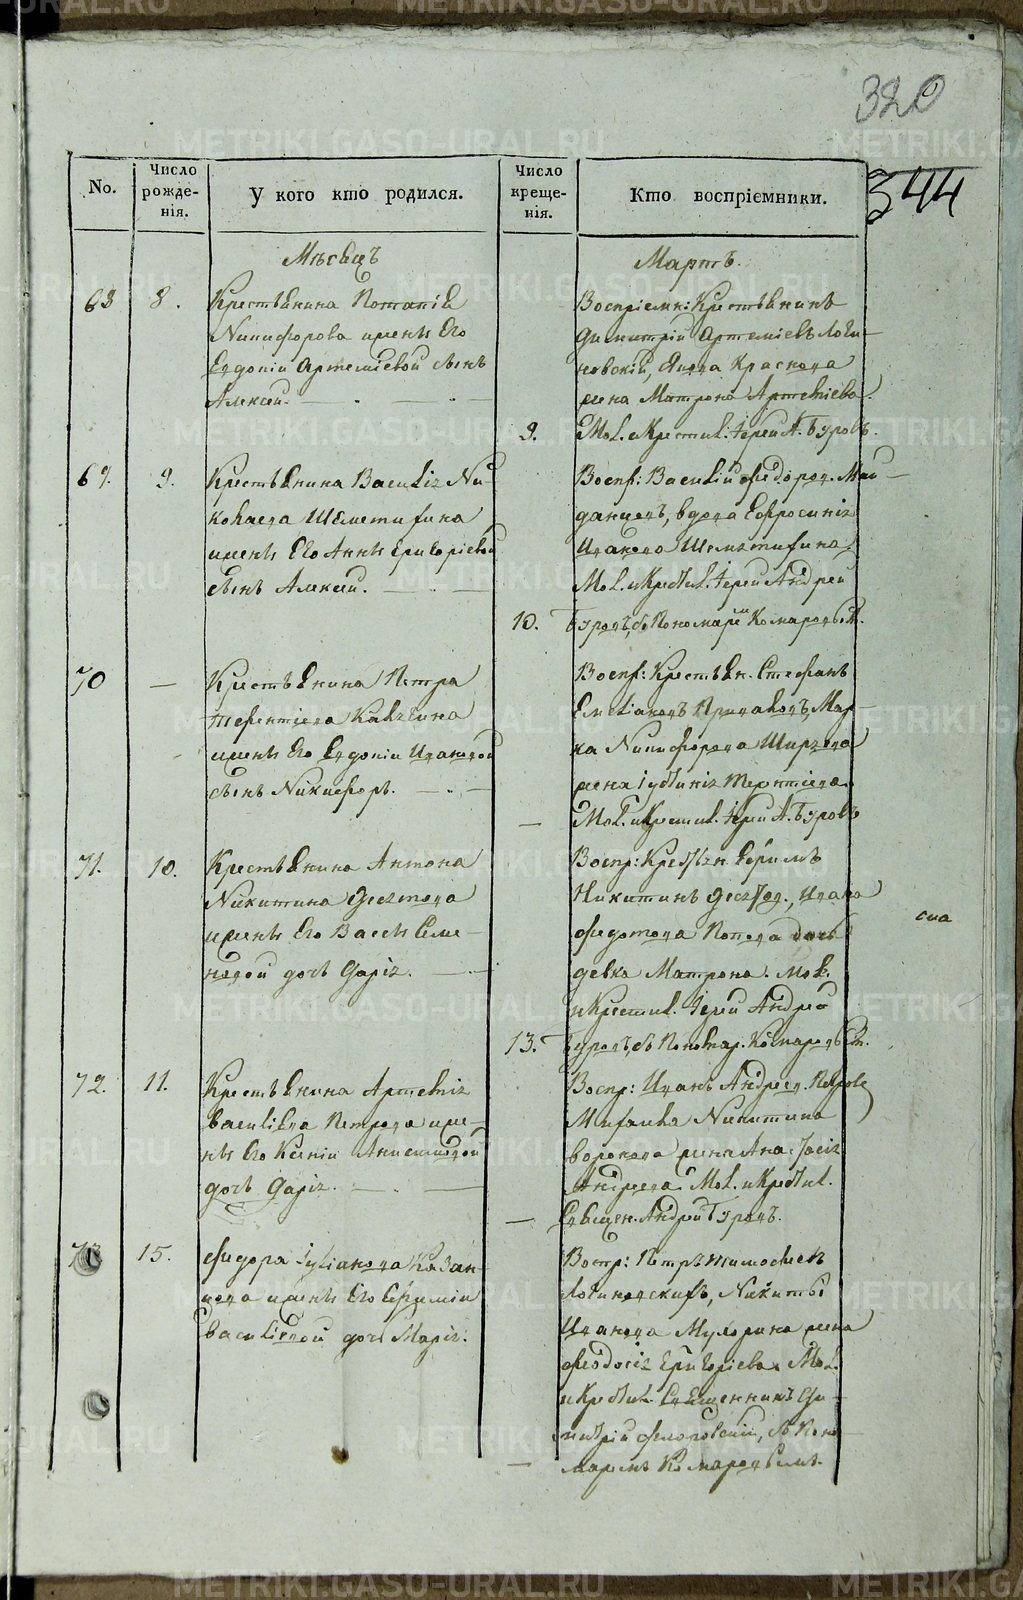 320
344
No.
Число рожде-нія.
У кого кто родился.
Число креще-нія.
Кто воспріемники.
Мѣсяцъ
Мартъ.
68 8.
Крестьянина Потапія
Никифорова жены Его
Евдокіи Артеміевой сынъ
Алексей.
Воспріемн: Крестьянинъ
Димитрій Артеміевъ Логи-
новскій, Якова Краснова
жена Матрона Артеміева.
9. Мол. и Крестил. Іерей А. Буровъ.
69. 9.
Крестьянина Василія Ни-
колаева
жены Его Анны Григоріевой
сынъ Алексей.
Воспр: Василій Федоров. Май-
данцевъ, вдова Ефросинія
Иванова
Мол. и Крестил. Іерей Андрей
10. Буровъ, съ Пономарем Комаровым.
70 —
Крестьянина Петра
Терентіева
жены Его Евдокіи Ивановой
сынъ Никифоръ.
Воспр: Крестьян. Стефанъ
Емеліановъ Мар-
ка Никифорова
жена Іустинія
— Мол. и Крестил. Іерей А. Буровъ
71. 10.
Крестьянина Антона
Никитина Десятова
жены Его Вассы Семе-
новой дочь Дарія.
Воспр: Крестьян. Ефимъ
Никитинъ Десятов., Ивана
Федотова Попова дочь
девка Матрона. Мол.
и Крестил. Іерей Андрей
13. Буровъ, съ Пономар. Комаровым.
сиа
72. 11.
Крестьянина Артемія
Василіева Петрова же-
ны Его Ксеніи Анисимовой
дочь Дарія.
Воспр: Иванъ Андреев. Петровъ
Михаила Никитина
жена Ана-стасія
Андреева. Мол. и Крестил.
— Священ. Андрей Буровъ.
73 15.
Федора Іуліанова Казан-
цева жены Его Ефиміи
Василіевой дочь Марія.
Воспр: Петръ Тимофеевъ
Логиновскихъ, Никиты
Иванова Мухорина жена
Феодосія Григоріева. Мол.
и Крестил. Священникъ Ди-
митрій Флоровскій, съ Поно-
— маремъ Комаровымъ.
METRIKI.GASO-URAL.RU